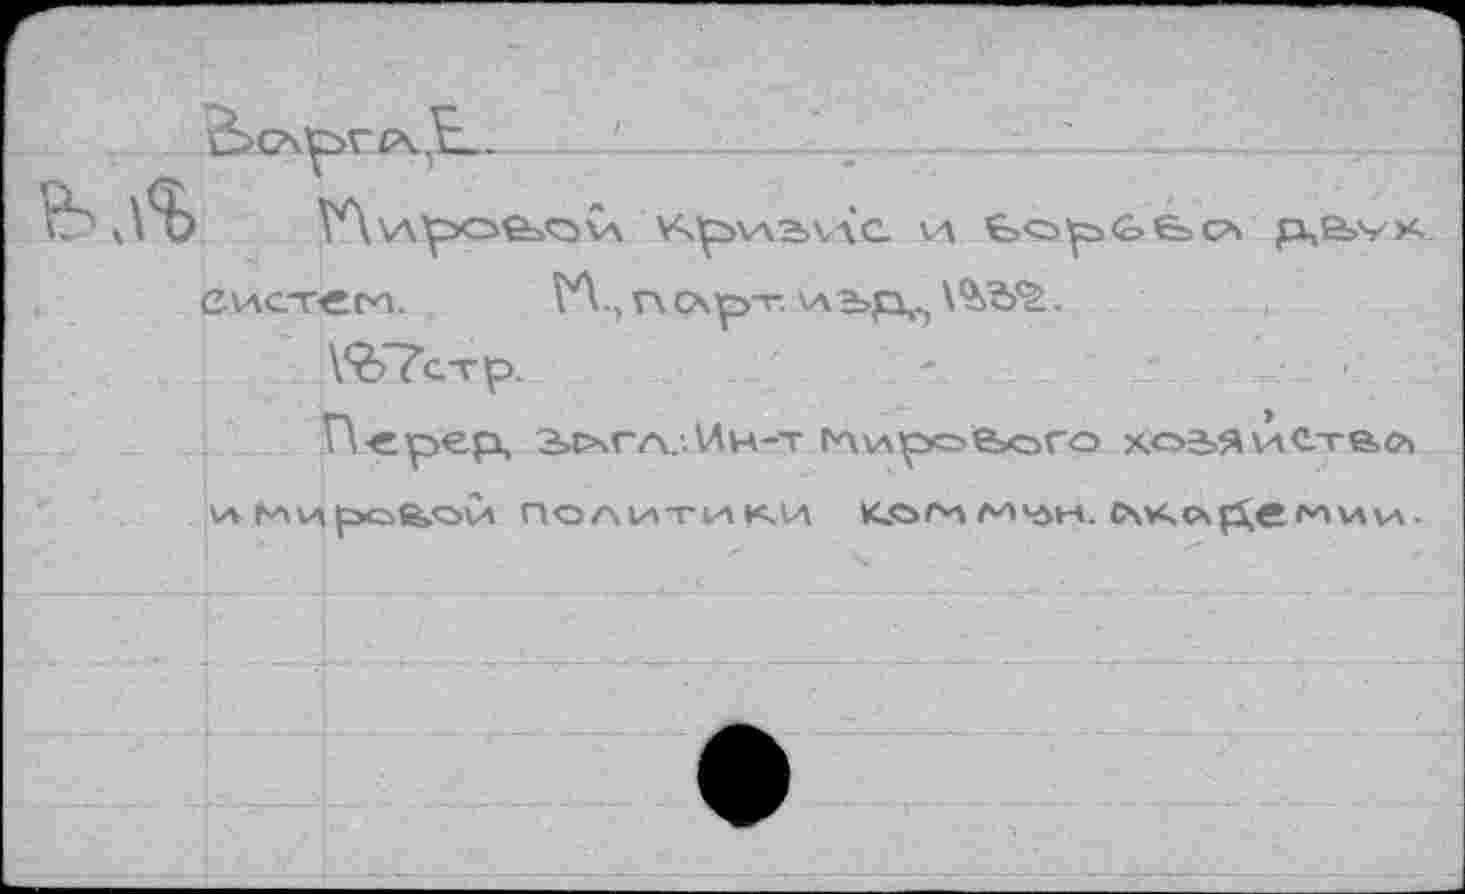 Варга, Е.
Мировой кризис и борьба двух
систем. М., парт. изд., 1932.
137стр.
Перед загл.: Ин-т мирового хозяйства
и мировой политики коммун. академии.